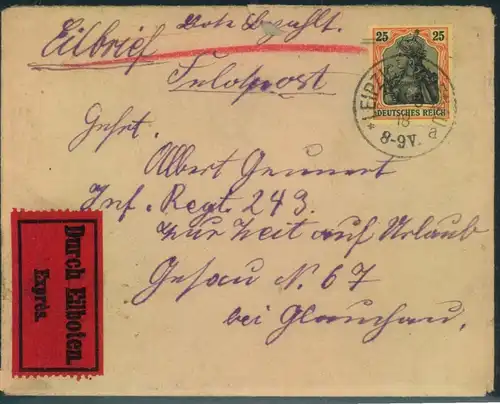 Eilbrief Bote bezahlt.
Feldpost
25 25
DEUTSCHES REICH
* LEIPZIG
18
8-9V.
a
Gefr.
Albert Gennert
Inf. Regt. 243.
zur Zeit auf Urlaub
Gesau N. 67
bei Glauchau.
Durch Eilboten.
Exprès.